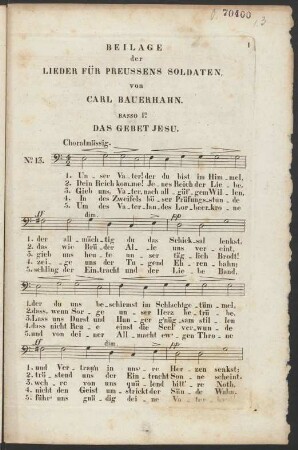 70400
1
BEILAGE
der
LIEDER FÜR PREUSSENS SOLDATEN,
von
CARL BAUERHAHN.
BASSO 1º
DAS GEBET JESU.
Choralmässig.
Nº 13.
1. Un - ser Va - ter! der du bist in Him - mel,
2. Dein Reich komme! Je - nes Reich der Lie - be.
3. Gieb uns, Va - ter, nach all - güt' - gem Wil - len,
4. In des Zweifels bö - ser Prüfungs - stun - de
5. Um des Va - ter - lan - des Lor - beer kro - ne
ff dim. pp
1. der all - mäch - tig du das Schick - sal lenkst.
2. das wie Brü - der Al - le uns ver - eint,
3. gieb uns heu - te un - ser täg - lich Brodt!
4. zei - ge uns der Tu - gend Eh - ren - bahn;
5. schling der Ein - tracht und der Lie - be Band.
1. der du uns be - schirmst im Schlachtge - tümmel,
2. dass, wenn Sor - ge un - ser Herz be - trü - be,
3. Lass uns Durst und Hun - ger g'nügsam stil - len
4. dass nicht Reu - e einst die Seel' ver - wun - de
5. und von dei - ner All - macht ew' - gen Thro - ne
ff dim. pp
1. und Ver - traun in uns - re Her - zen senkst:
2. trö - stend uns der Ein - tracht Son - ne scheint.
3. weh - re von uns quä - lend bitt' - re Noth.
4. nicht den Geist um - strickt der Sün - de Wahn.
5. führ' uns gnä - dig dei - ne